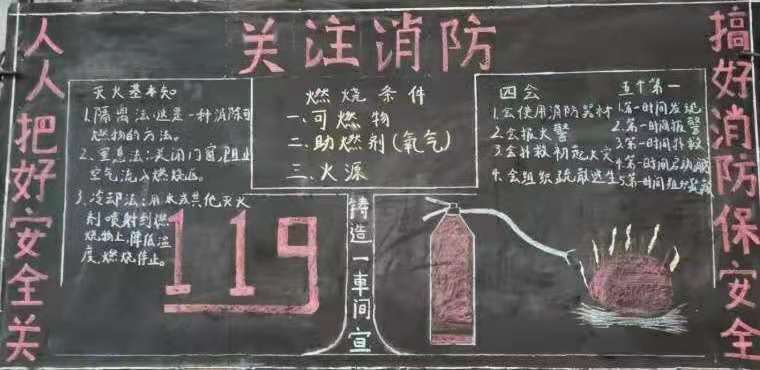 关注消防
人人把好安全关
灭火基本知
1.隔离法:这是一种消除可
燃物的方法。
2.窒息法:关闭门窗,阻止
空气流入燃烧区。
3.冷却法:用水或其他灭火
剂喷射到燃
烧物上,降低温
度,燃烧停止。
119
燃烧条件
一、可燃物
二、助燃剂(氧气)
三、火源
铸造一車间宣
四会
1.会使用消防器材
2.会报火警
3.会扑救初起火灾
4.会组织疏散逃生
五个第一
1.第一时间发现
2.第一时间报警
3.第一时间扑救
4.第一时间启动
5.第一时间组织疏散
搞好消防保安全